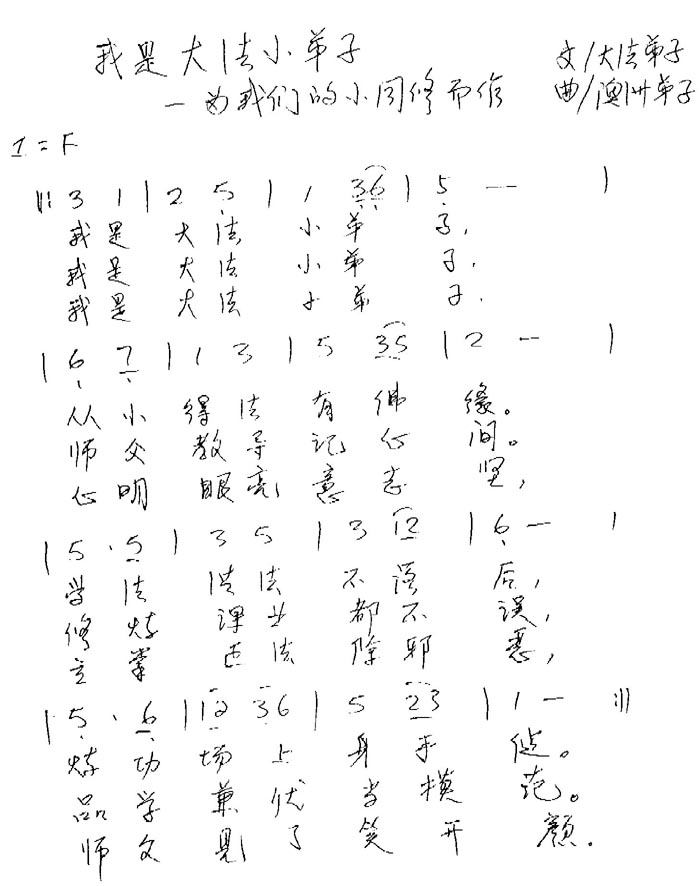 我是大法小弟子 文/大法弟子
—为我们的小同修而作 曲/澳洲弟子
1=F
‖: 3 1 | 2 5 | 1 36 | 5 — |
我是 大法 小弟 子,
我是 大法 小弟 子.
我是 大法 小弟 子.
| 6 7 | 1 3 | 5 35 | 2 — |
从小 得法 有佛 缘。
师父 教导 记心 间。
心明 眼亮 意志 坚,
| 5 · 5 | 3 5 | 3 12 | 6 — |
学法 洪法 不落 后,
修炼 课业 都不 误,
立掌 正法 除邪 恶,
| 5 · 6 | 12 36 | 5 23 | 1 — :‖
炼功 场上 身手 健。
品学 兼优 当模 范。
师父 见了 笑开 颜.